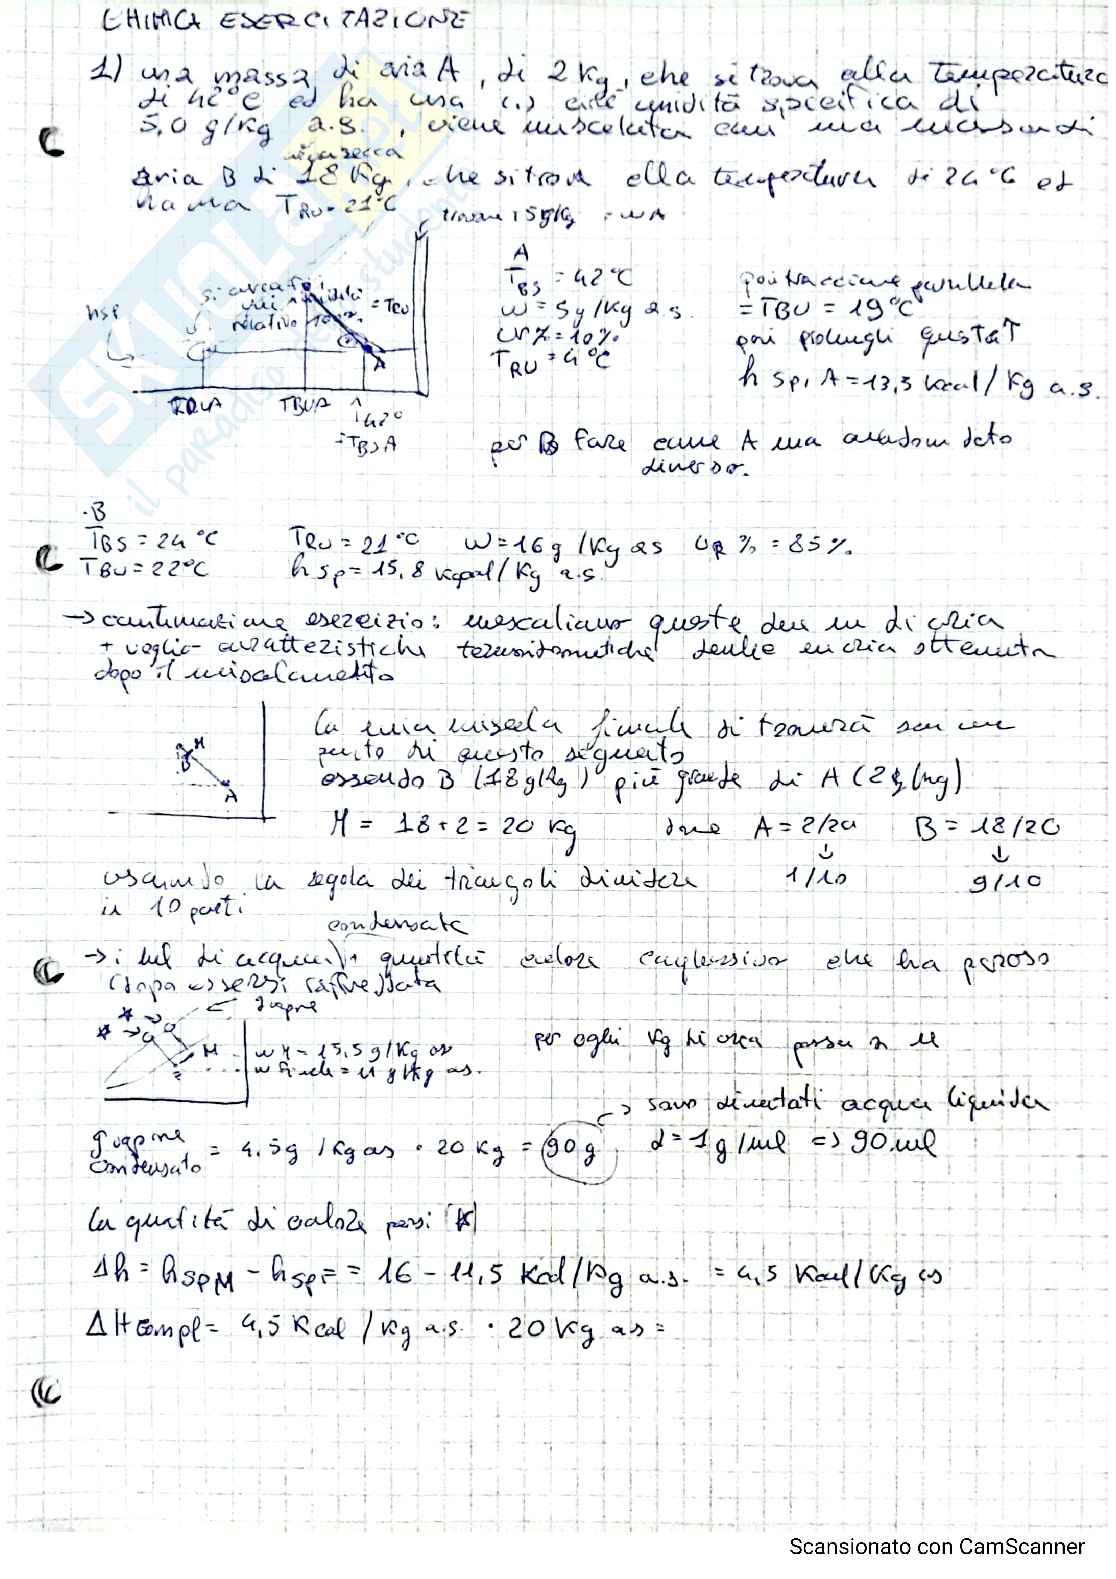 CHIMICA ESERCITAZIONE
1) una massa di aria A, di 2 Kg, che si trova alla temperatura
di 42°C ed ha una (.) umidità specifica di
5,0 g/Kg a.s., viene miscelata con una massa di
aria secca
aria B di 18 Kg, che si trova alla temperatura di 24°C ed
ha una TRU = 21°C
hsp
relativo 100%
= TRU
A
TRUA TBUA 42°
= TBSA
A
TBS = 42°C
w = 5g/Kg a.s.
UR% = 10%
TRU = 4°C
poi tracciare parallela
= TBU = 19°C
poi prolunghi questa ↑
h sp, A = 13,5 Kcal/Kg a.s.
per B fare come A ma avendo dato
diverso.
.B
TBS = 24°C TRU = 21°C w = 16g/Kg as UR% = 85%
TBU = 22°C hsp = 15,8 Kcal/Kg a.s.
→ continuazione esercizio: mescoliamo queste due m di aria
+ voglio caratteristiche termoigrometriche dell'aria ottenuta
dopo il miscelamento
B M
A
la mia miscela finale si troverà su un
punto di questo segmento
essendo B (18g/Kg) più grande di A (2g/Kg)
M = 18 + 2 = 20 Kg dove A = 2/20 B = 18/20
↓ ↓
usando la regola dei triangoli dividere 1/10 9/10
in 10 parti
condensata
→ i ml di acqua + quantità calore complessivo che ha perso
(dopo essersi raffreddata
M
F
wM = 15,5g/Kg as
w finale = 11 g/Kg as.
per ogni Kg di aria passa a M
→ sono diventati acqua liquida
g vapore
condensato = 4,5g/Kg as · 20 Kg = 90 g d = 1g/ml => 90 ml
la quantità di calore persi (*)
Δh = hSPM - hSPF = 16 - 11,5 Kcal/Kg a.s. = 4,5 Kcal/Kg as
ΔH compl = 4,5 Kcal/Kg a.s. · 20 Kg as =
Scansionato con CamScanner
SKUOLA.net
il paradiso dello studente